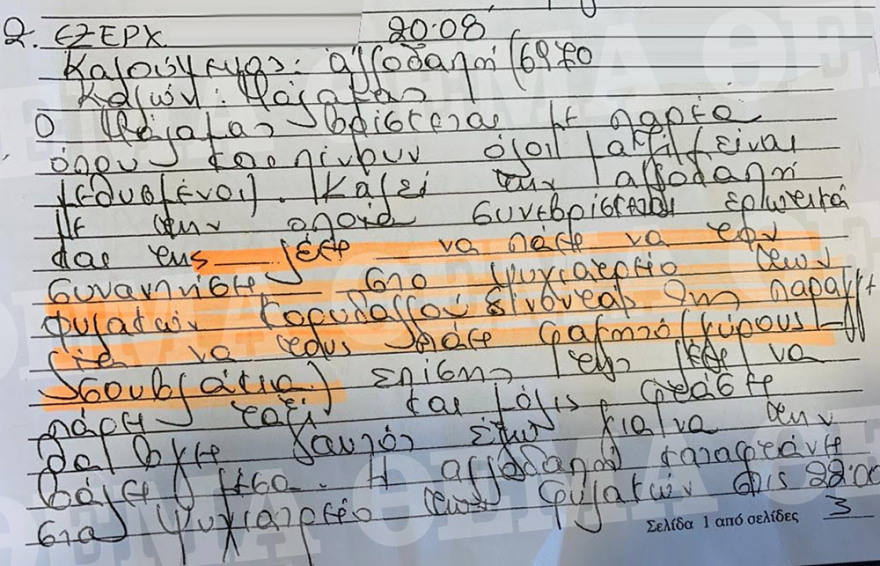 2. ΕΞΕΡΧ 20:08
Καλούμενος: αλλοδαπή (6970
Καλών:
Ο βρίσκεται με παρέα
όπου και πίνουν όλοι μαζί (είναι
μεθυσμένοι). Καλεί την αλλοδαπή
με την οποία συνευρίσκεται ερωτικά
και της λέει να πάει να τον
συναντήσει στο ψυχιατρείο των
φυλακών Κορυδαλλού
να τους φάει
σουβλάκια) επίσης της λέει να
πάρει ταξί και μόλις φτάσει
θα βγει αυτός έξω για να την
βάλει μέσα. Η αλλοδαπή καταφτάνει
στο ψυχιατρείο των φυλακών στις 22:00
Σελίδα 1 από σελίδες 3